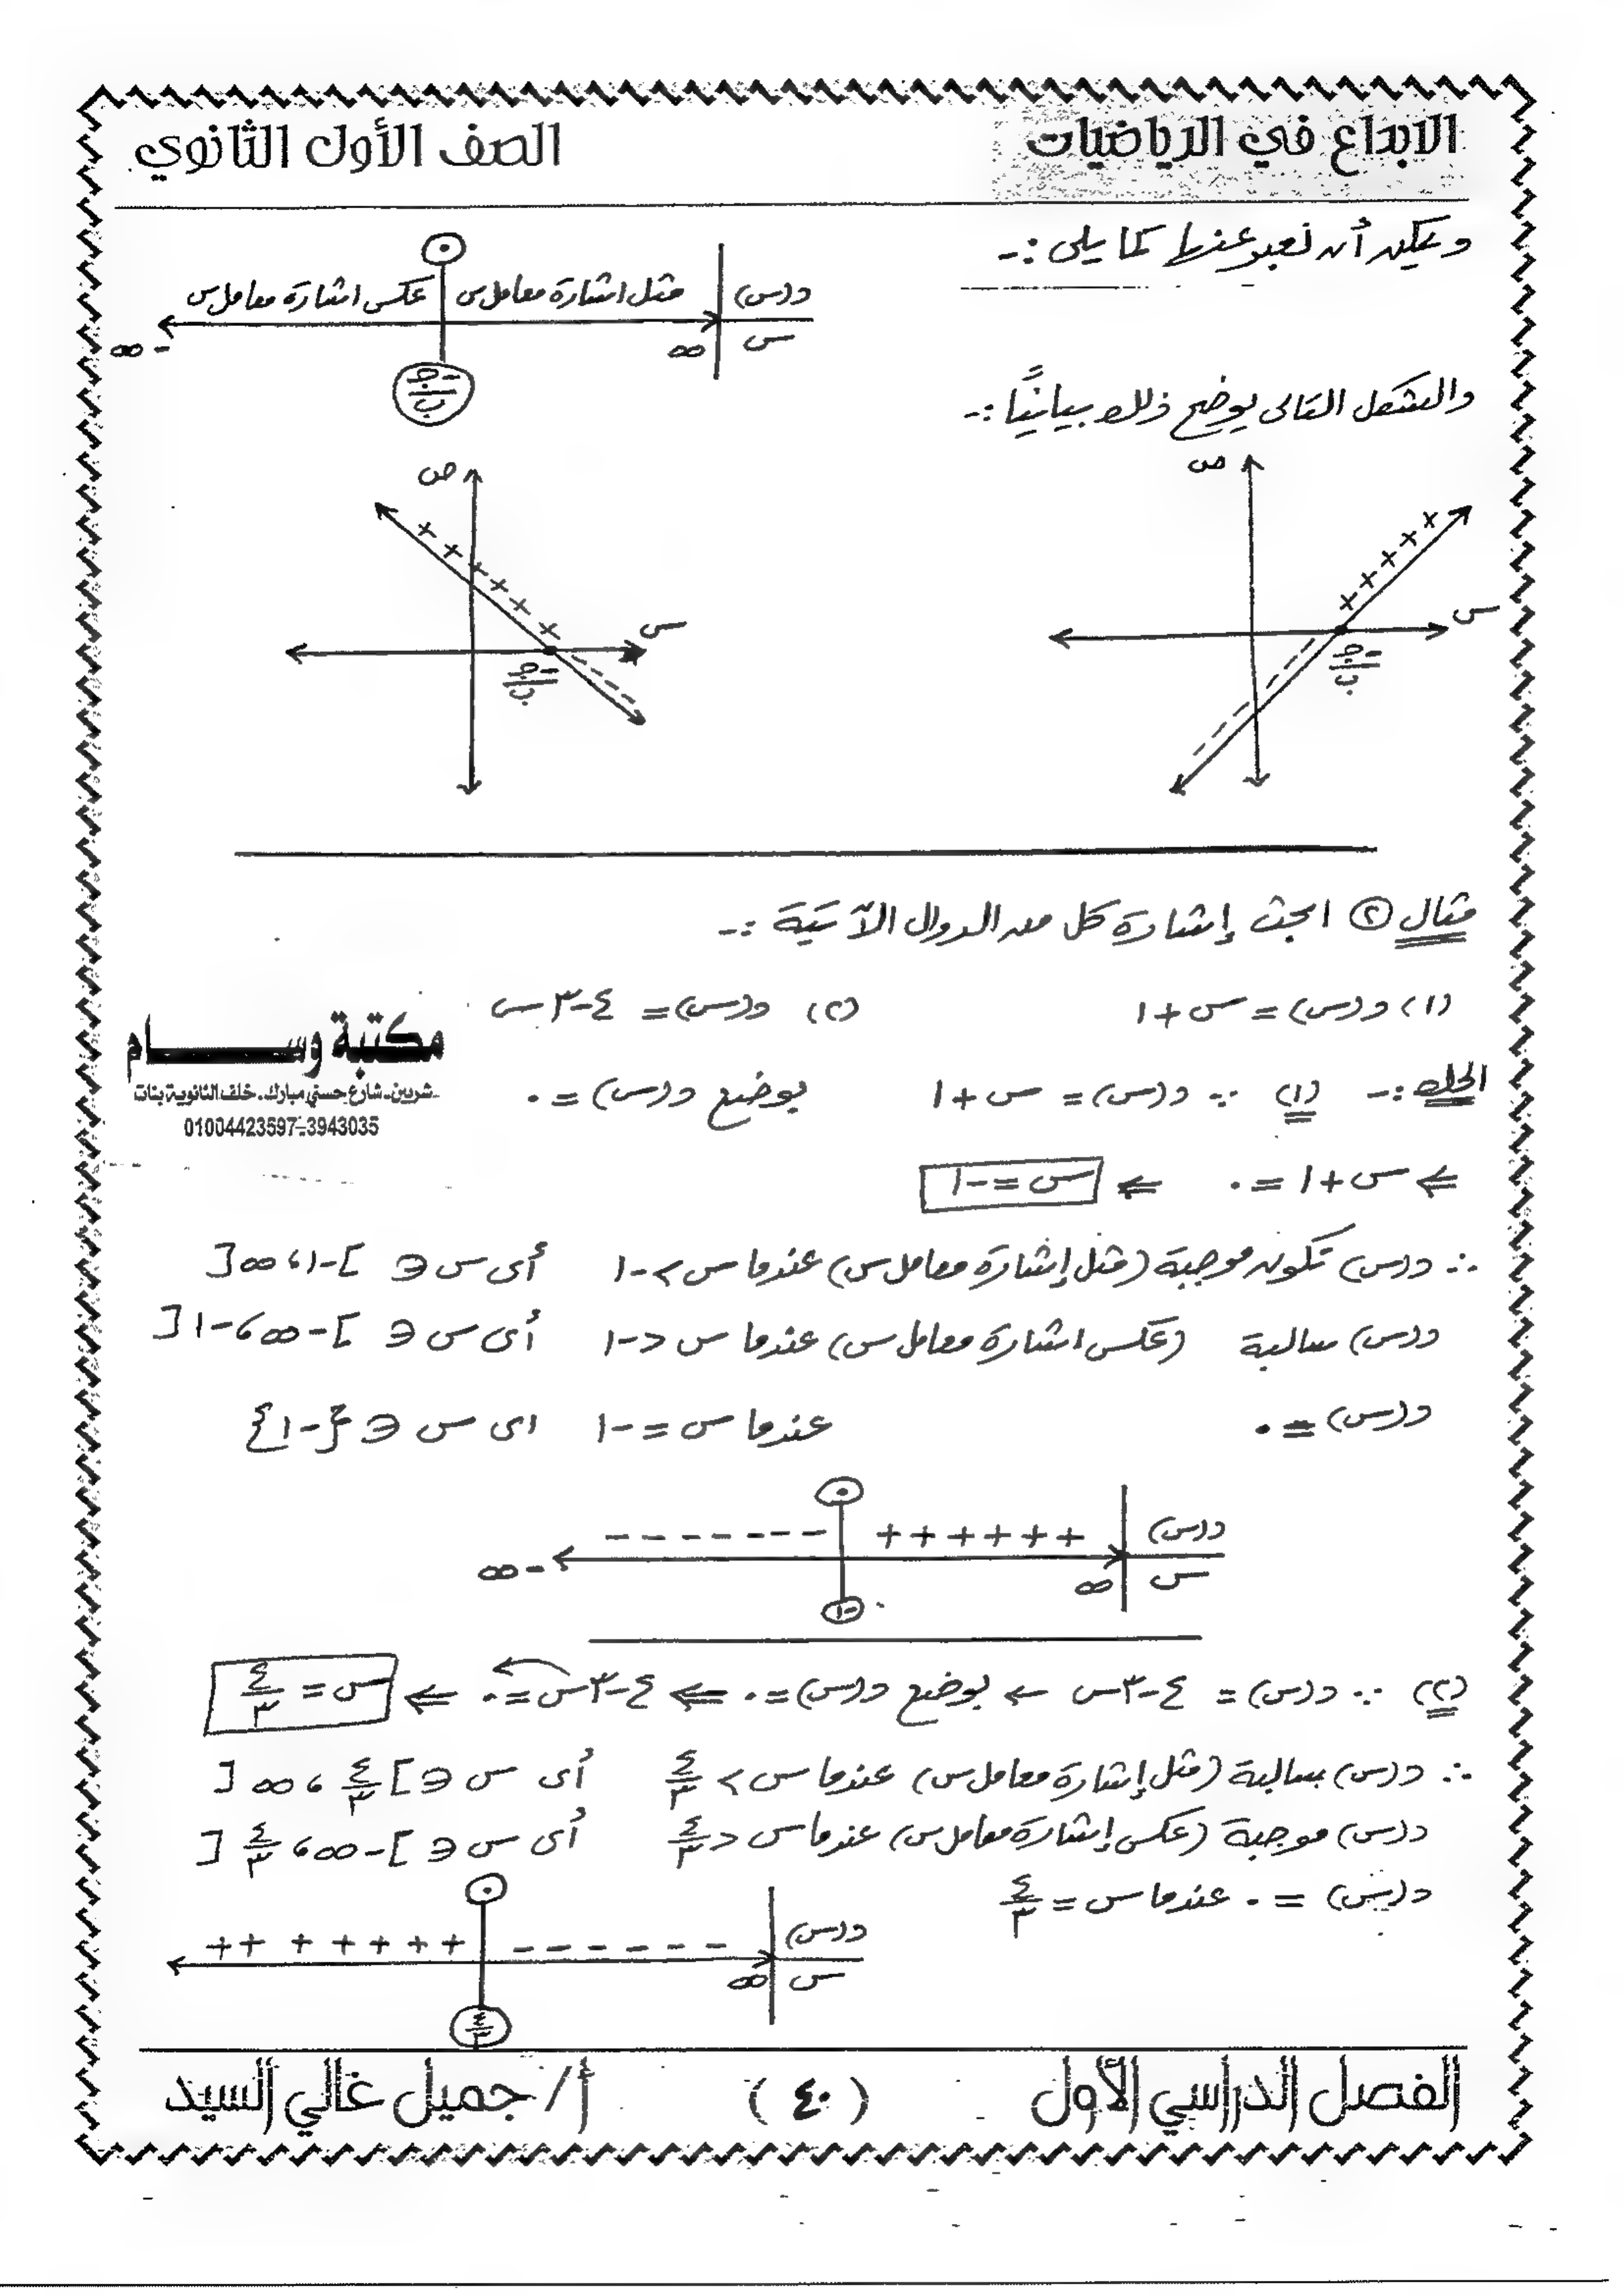 الابداع في الرياضيات
الصف الأول الثانوي
ويمكن أن نعبر عنها كما يلى :-
د(س) مثل اشارة معامل س عكس اشارة معامل س
س ∞ -جـ/ب -∞
والشكل التالى يوضح ذلك بيانيًا :-
ص
س
-جـ/ب
ص
س
-جـ/ب
مثال ② ابحث إشارة كل من الدوال الآتية :-
(١) د(س) = س + ١ (٢) د(س) = ٤ - ٣س
مكتبة وسام
شربين - شارع حسني مبارك . خلف الثانوية بنات
01004423597-3943035
الحل :- (١) ∵ د(س) = س + ١ بوضع د(س) = ٠
⇐ س + ١ = ٠ ⇐ س = -١
∴ د(س) تكون موجبة (مثل إشارة معامل س) عندما س > -١ أى س ∈ ]-١، ∞[
د(س) سالبة (عكس اشارة معامل س) عندما س < -١ أى س ∈ ]-∞، -١[
د(س) = ٠ عندما س = -١ اى س ∈ {-١}
٠
د(س) + + + + + + - - - - - - -
س ∞ -١ -∞
(٢) ∵ د(س) = ٤ - ٣س ← بوضع د(س) = ٠ ⇐ ٤ - ٣س = ٠ ⇐ س = ٤/٣
∴ د(س) سالبة (مثل إشارة معامل س) عندما س > ٤/٣ أى س ∈ ]٤/٣، ∞[
د(س) موجبة (عكس إشارة معامل س) عندما س < ٤/٣ أى س ∈ ]-∞، ٤/٣[
د(س) = ٠ عندما س = ٤/٣
٠
د(س) - - - - - - + + + + + + +
س ∞ ٤/٣
الفصل الدراسي الأول
( ٤٠ )
أ / جميل غالي السيد